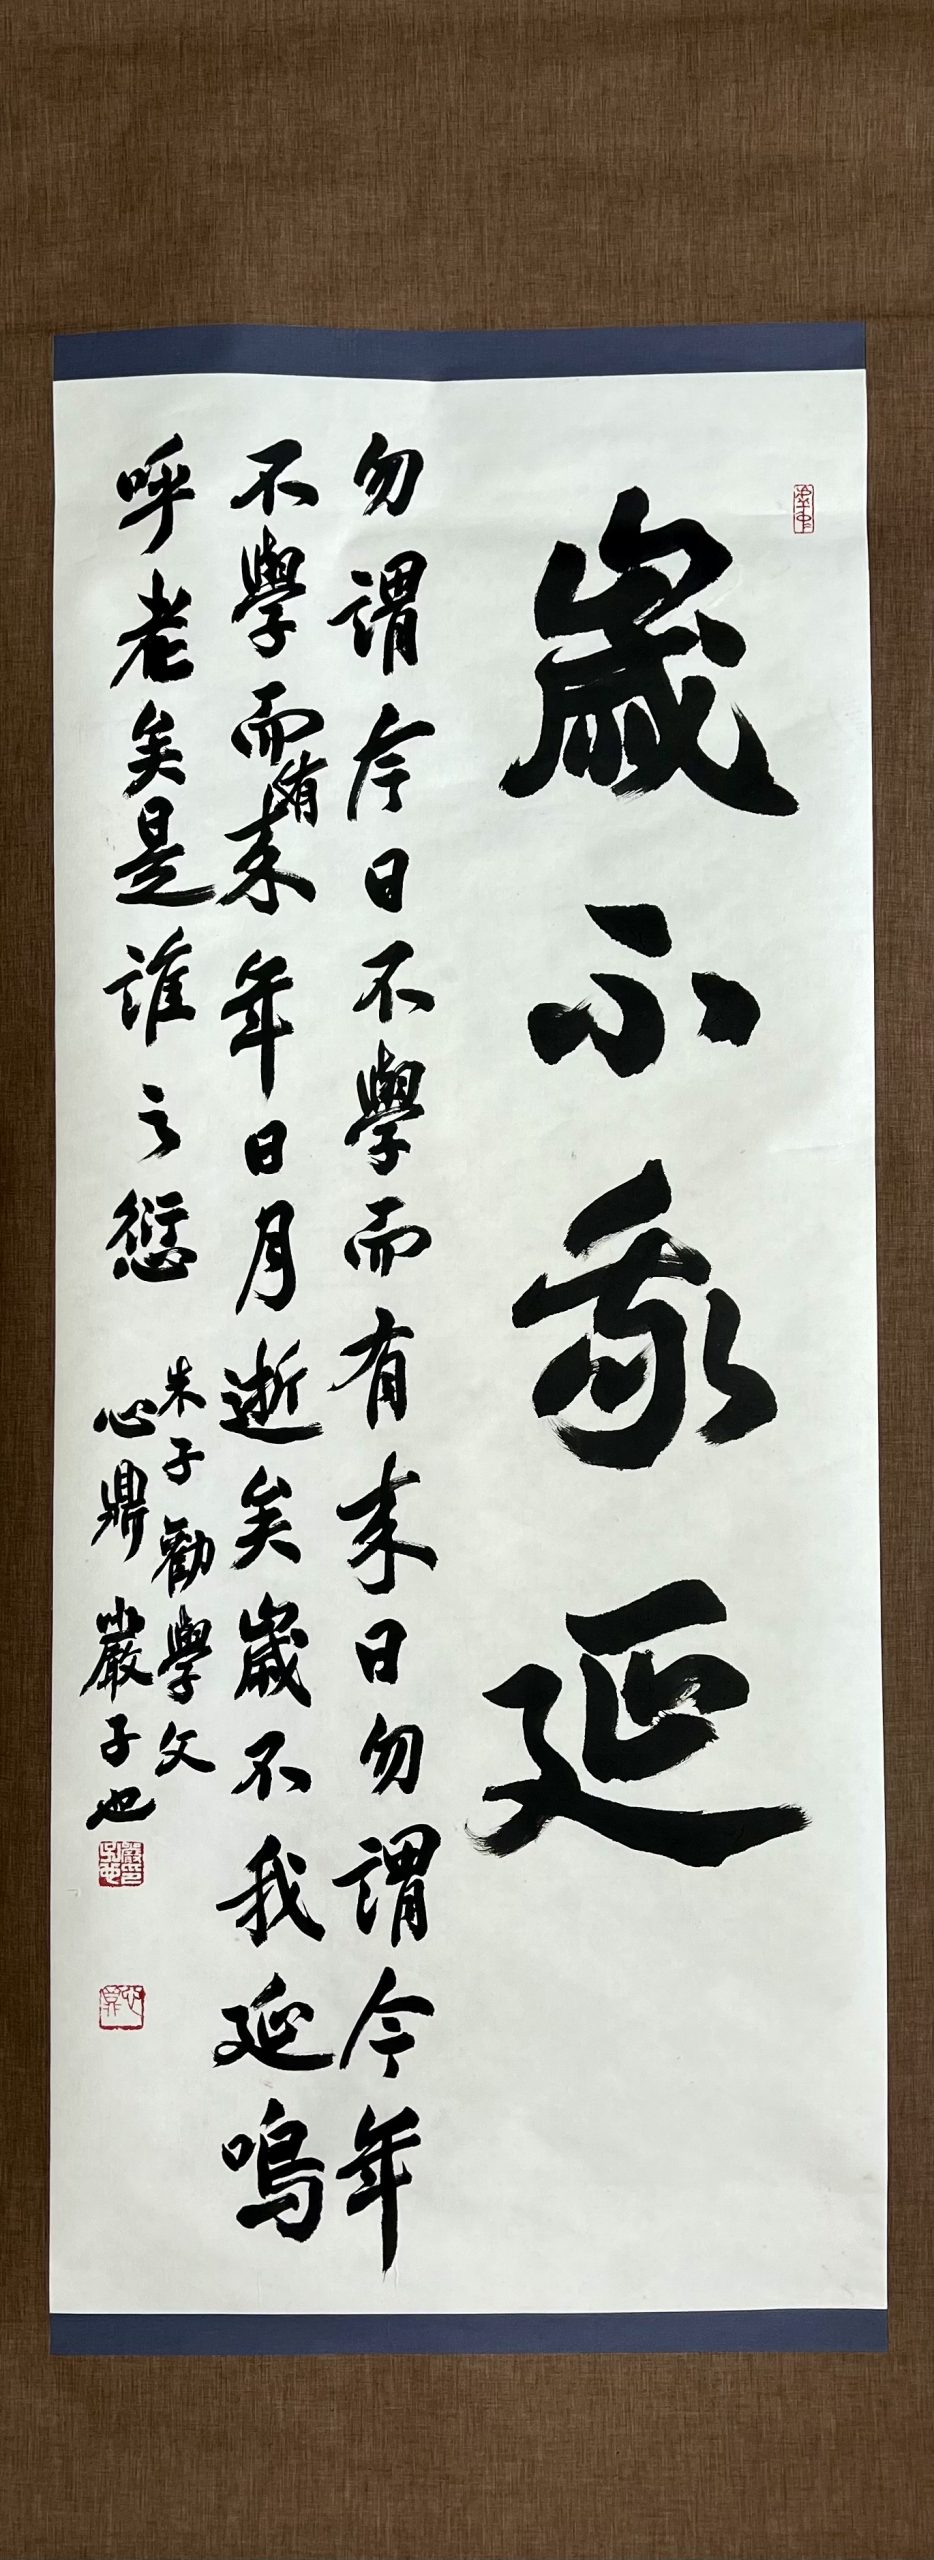 歲不我延
勿謂今日不學而有來日勿謂今年
不學而有來年日月逝矣歲不我延嗚
呼老矣是誰之愆
朱子勸學文
心鼎嚴子也